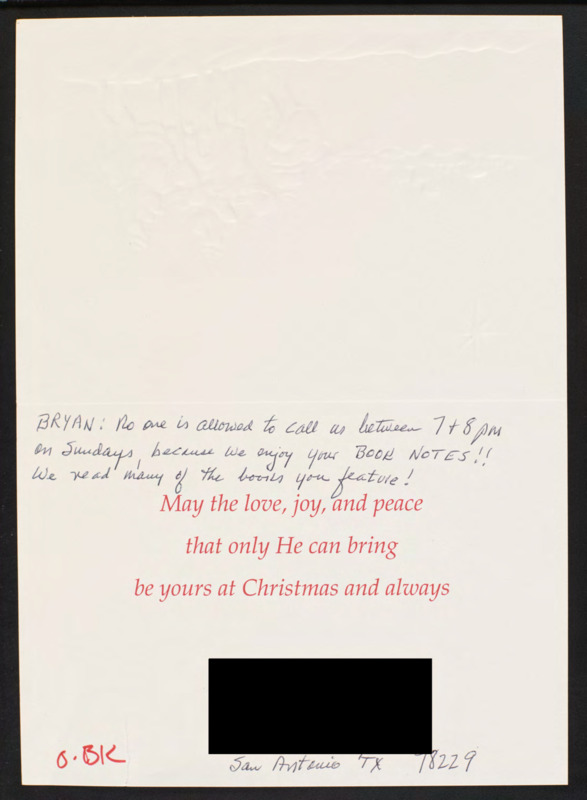 BRYAN: No one is allowed to call us between 7+8 pm
on Sundays, because we enjoy your BOOK NOTES!!
We read many of the books you feature!
May the love, joy, and peace
that only He can bring
be yours at Christmas and always
O.BK
San Antonio TX 78229